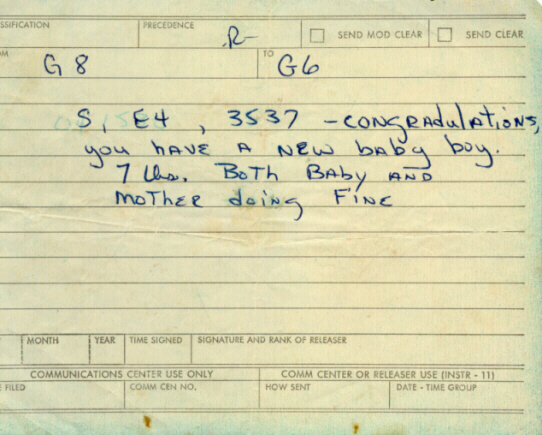 SSIFICATION PRECEDENCE R- SEND MOD CLEAR SEND CLEAR
OM G8 TO G6
S, E4, 3537 - CONGRADULATIONS,
you HAVE A NEW baby boy.
7 lbs. BOTH BABY AND
MOTHER doing FINE
MONTH YEAR TIME SIGNED SIGNATURE AND RANK OF RELEASER
COMMUNICATIONS CENTER USE ONLY COMM CENTER OR RELEASER USE (INSTR - 11)
E FILED COMM CEN NO. HOW SENT DATE - TIME GROUP